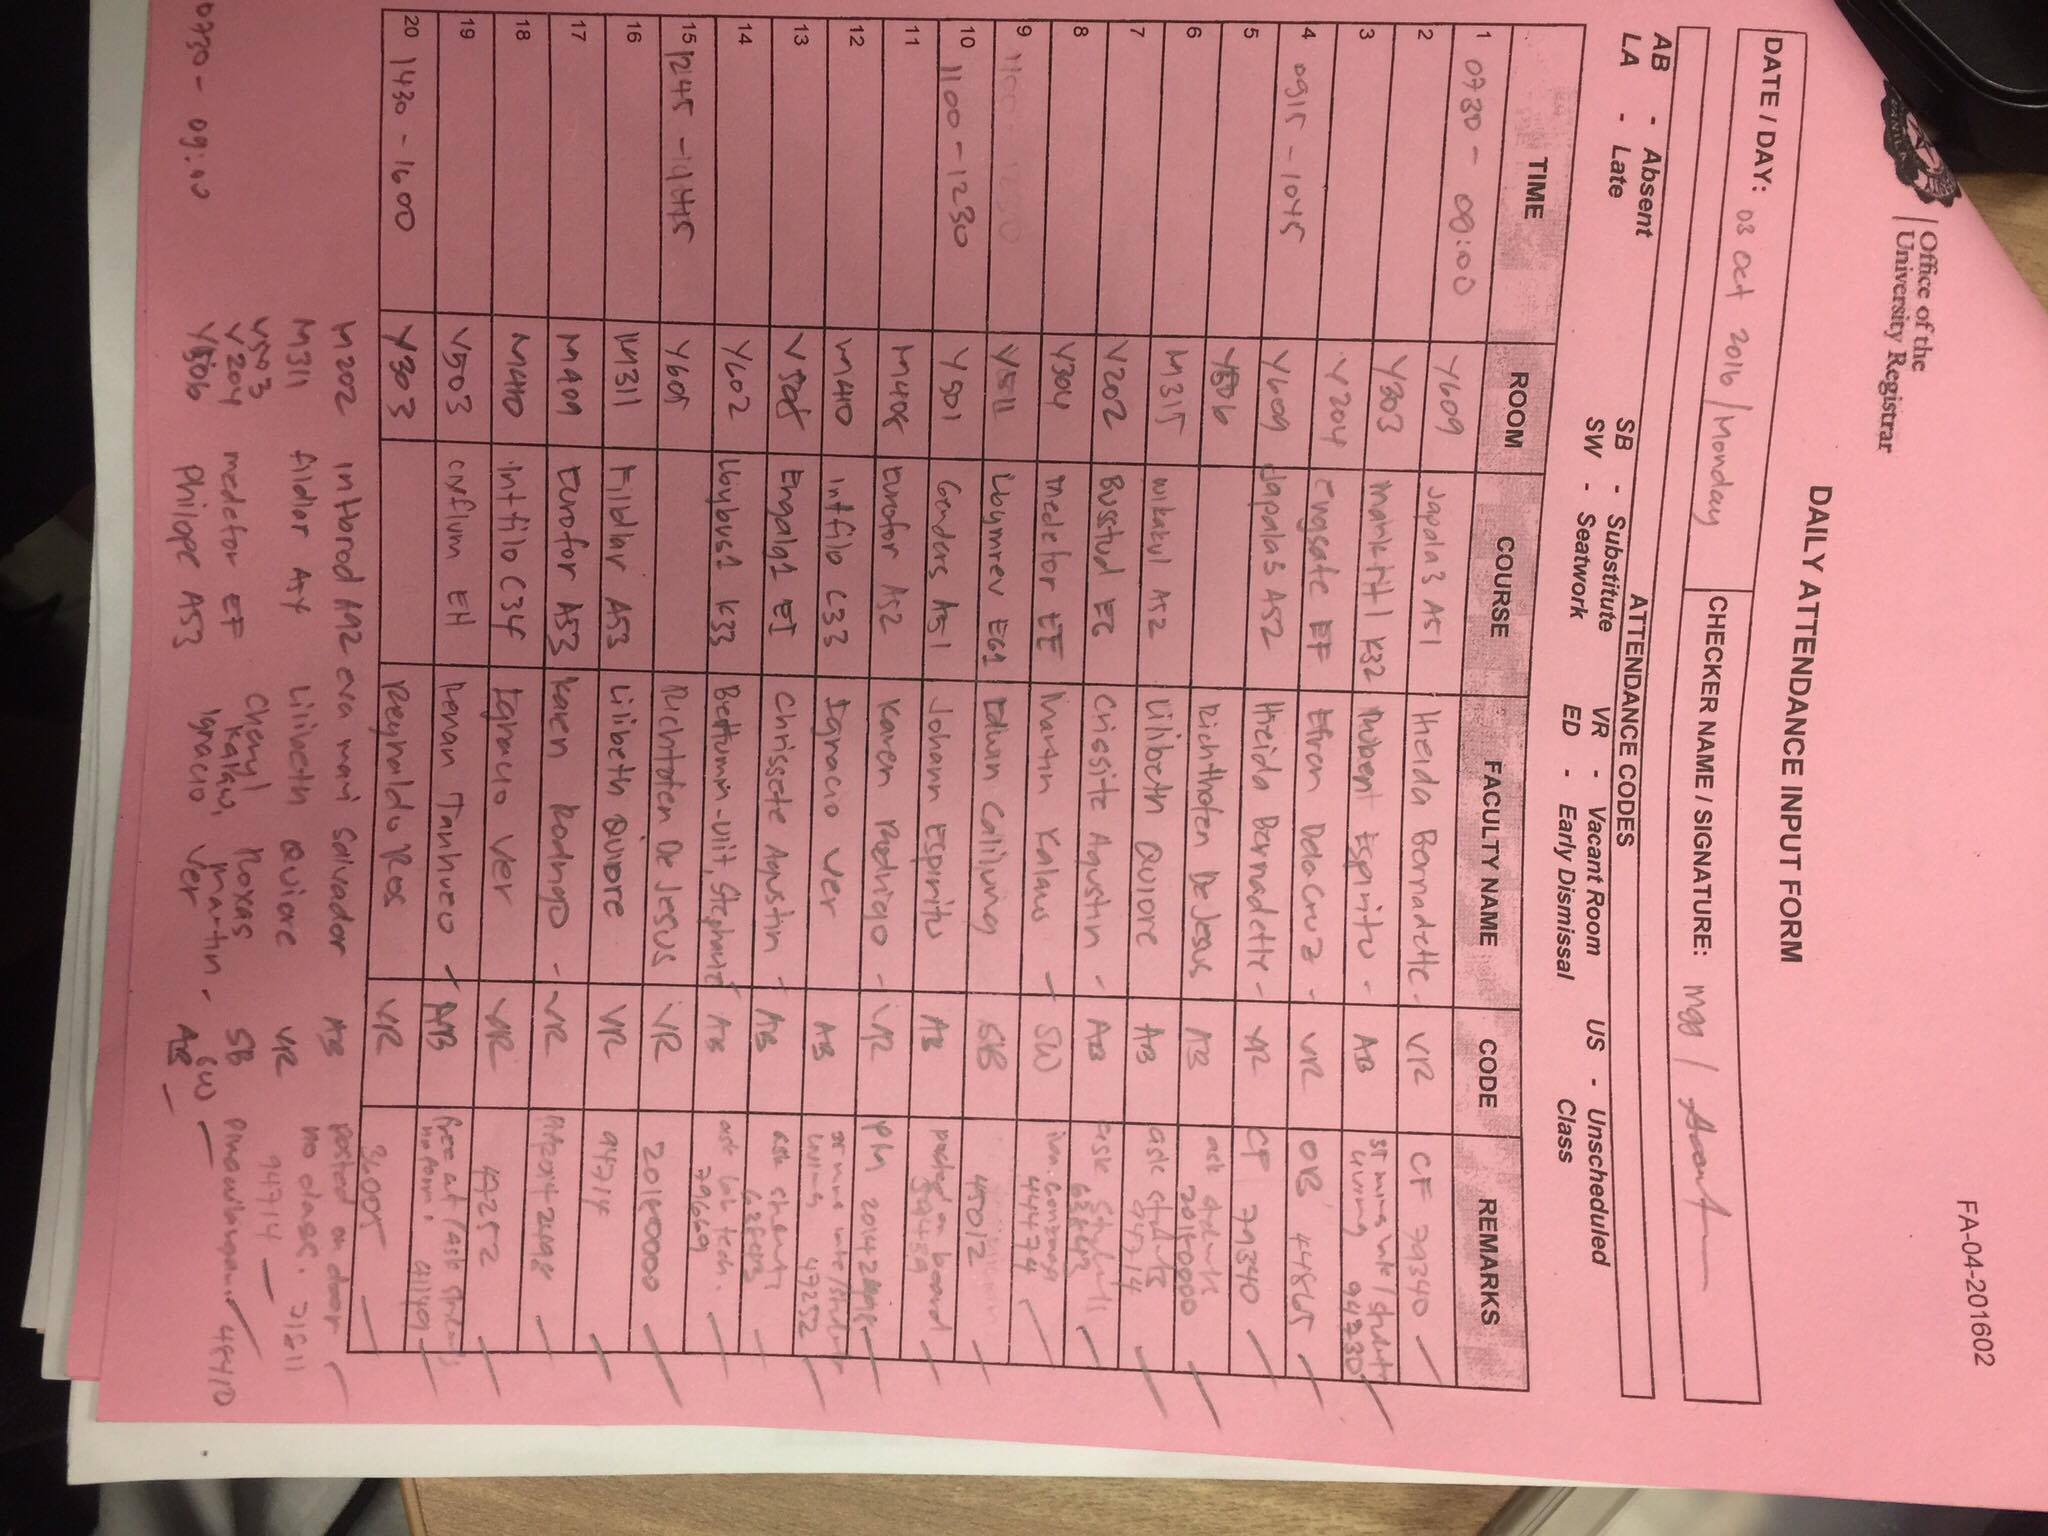 FA-04-201602
Office of the
University Registrar
DAILY ATTENDANCE INPUT FORM
DATE / DAY: 03 Oct 2016 / Monday CHECKER NAME / SIGNATURE: mgg /
ATTENDANCE CODES
AB - Absent SB - Substitute VR - Vacant Room US - Unscheduled
LA - Late SW - Seatwork ED - Early Dismissal Class
TIME ROOM COURSE FACULTY NAME CODE REMARKS
1 0730 - 09:00 Y609 Japala3 A51 Hieida Bernadette - VR CF 79340
2 Y303 K32 Robert Espiritu - AB 35 mins late / students
94730
3 Y204 Engsate EF Efren DelaCruz - VR OB 44865
4 0915 - 1045 Y609 Japala3 A52 Hieida Bernadette - VR CF 79340
5 Y506 Richthofen De Jesus AB ask students
20180000
6 M315 wikakul A52 Lilibeth Quiore AB ask students
94714
7 V202 Busstud EG Crissite Agustin - AB ask students
63843
8 Y304 Medefor EE Martin Kalaw - SW
44474
9 1100 - 1230 Y511 Lbymrev EG1 Edwin Calilung SB 45012
10 1100 - 1230 Y501 Genders A51 Johann Espiritu AB posted on board
59439
11 M408 Eurofor A52 Karen Rodrigo - VR PM 20142498
12 M410 Intfilo C33 Ignacio Ver AB 35 mins late / students
47252
13 V508 Engalg1 EI Chrissete Agustin AB ask students
63843
14 Y602 Lbybus1 K33 Bettumin-Ulit, Stephanie AB ask lab tech.
79669
15 1245 - 1415 Y605 Richtofen De Jesus VR 20180000
16 M311 Fildlar A53 Lilibeth Quiore VR 94714
17 M409 Eurofor A53 Karen Rodrigo - VR 20142498
18 M410 Intfilo C34 Ignacio Ver VR 47252
19 V503 EH Renan Tanhueco AB free cut / ask students
no form. 41149
20 1430 - 1600 Y303 Reynaldo Ros VR 36005
M202 Intbrod A92 eva mari Salvador AB posted on door
no class. 71811
M311 fildlar A54 Lilibeth Quiore VR 94714
V503 Cheryl Roxas SB 48410
V204 medefor EF Kalaw, Martin - SW
0730 - 09:00 Y506 Philope A53 Ignacio Ver AB